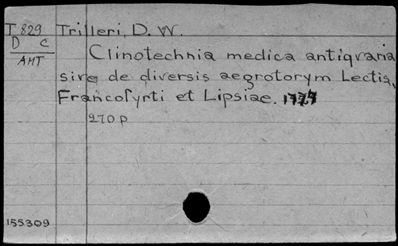 T 829 Trilleri, D. W.
D C
AHT
Clinotechnia medica antiqvaria
sive de diversis aegrotorym Lectis,
Francofyrti et Lipsiae. 1774
270 p
155309